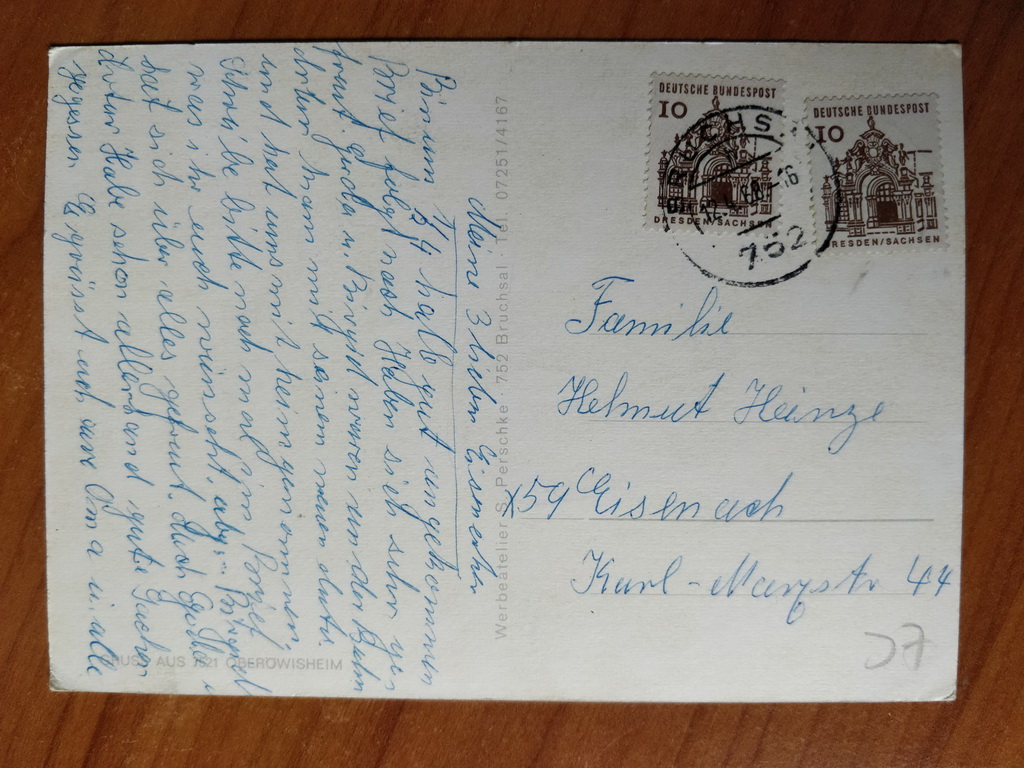 Meine 3 lieben Eisenacher
Bin um 1/4 halb gut angekommen
Brief folgt nach. Haben sich sehr ge-
freut. Gerda u. Brigid waren an der Bahn
dortur kam mit seinem neuen Auto
und hat uns mit heim genommen.
Schreibe bitte noch mal im Brief
was ihr euch wünscht, aby = Brigid
hat sich über alles gefreut. Auch Gerda u
Artur Habe schon allerhand gute Sachen
gegessen Es grüsst euch eure Oma u. alle
Werbeatelier S. Perschke · 752 Bruchsal · Tel. 07251/4167
GRUSS AUS 7521 OBERÖWISHEIM
DEUTSCHE BUNDESPOST
10
DRESDEN/SACHSEN
DEUTSCHE BUNDESPOST
10
DRESDEN/SACHSEN
BRUCHSAL
752
Familie
Helmut Heinze
X59 Eisenach
Karl-Marxstr 44